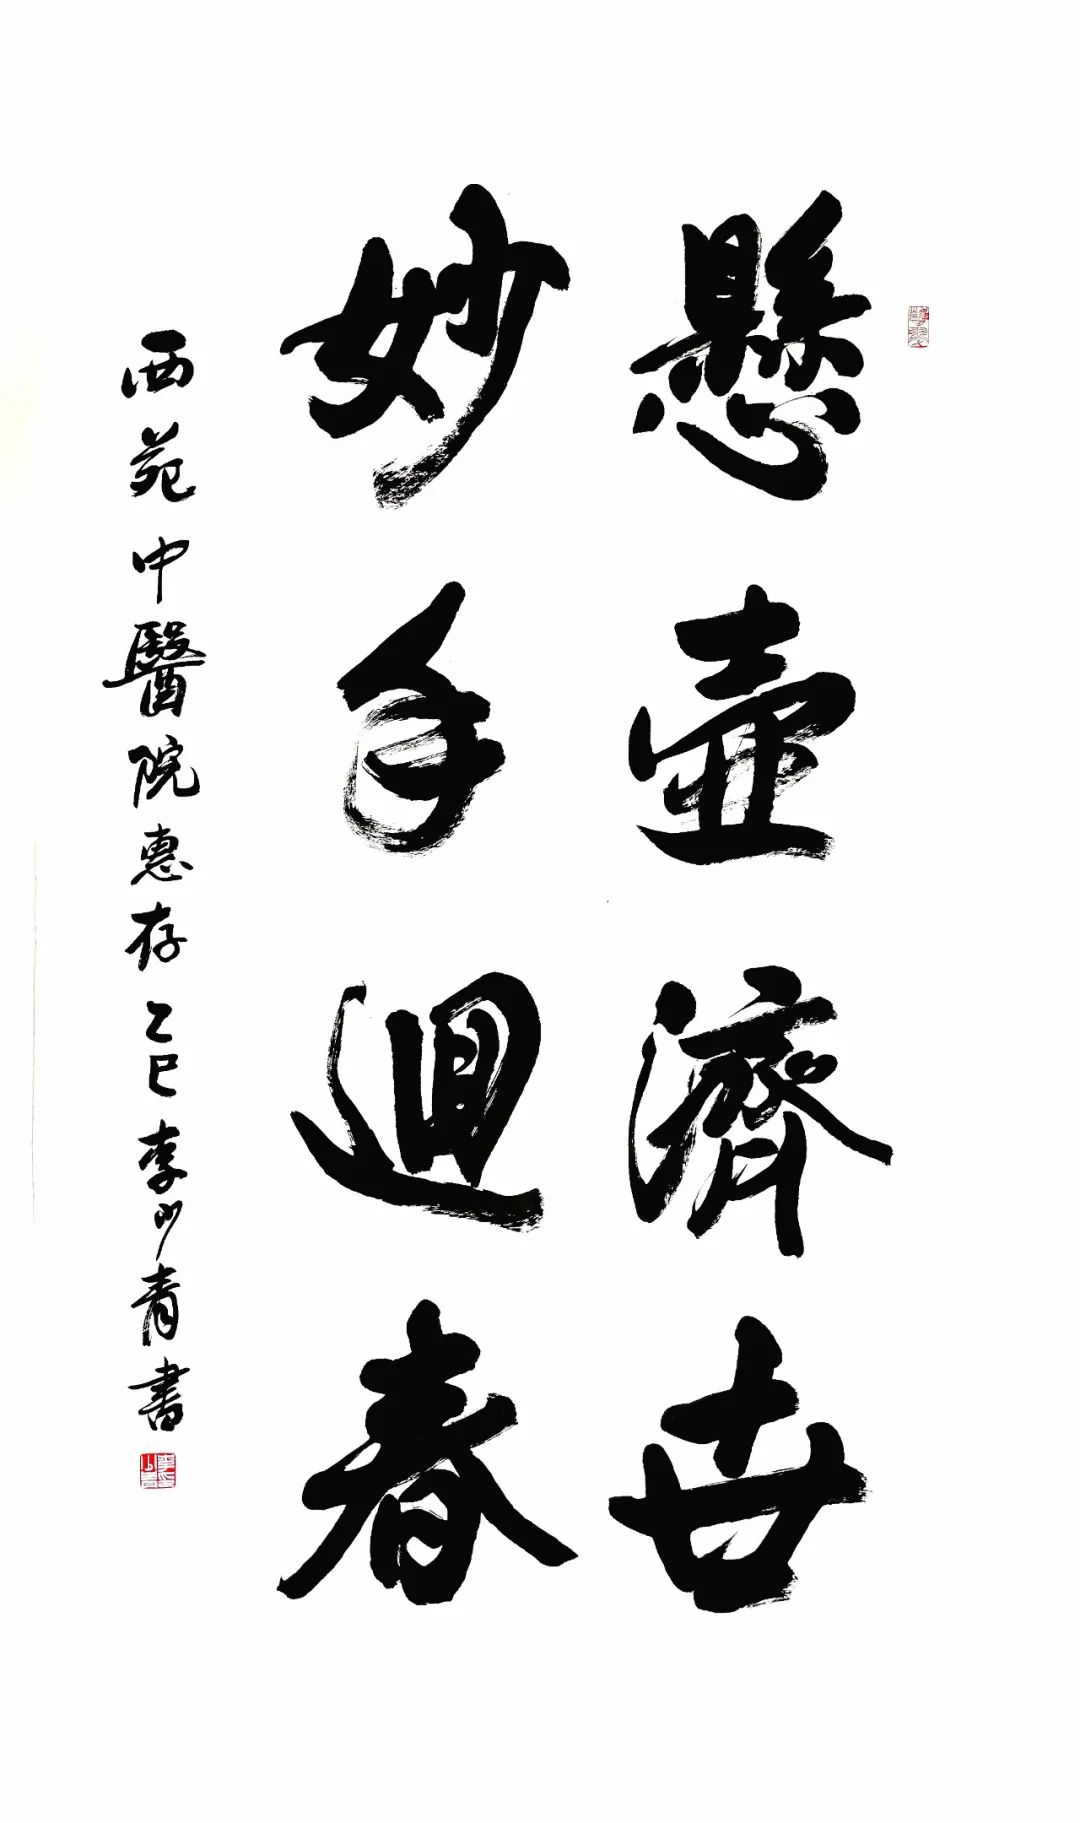 懸壺濟世
妙手迴春
西苑中醫院惠存 乙巳 李少青書